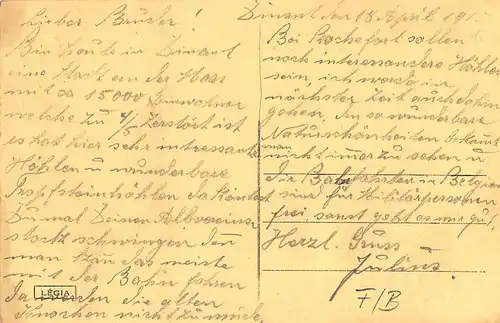 Lieber Bruder!
Bin heute in Dinant
eine Stadt an der Maas
mit ca 15000 Einwohner
welche zu 4/5 Zerstört ist
es hat hier sehr intressante
Höhlen u wunderbare
Tropfsteinhöhlen da könntest
Du mal Deinen Albvereins
stock schwingen den
man kan das meiste
mit der Bahn fahren
da werden die alten
Knochen nicht zu müde.
LEGIA
Dinant den 18 April 19
Bei Rochefort sollen
noch interessandere Höhlen
sein, ich werde in
nächster Zeit auch dahin
gehen, den so wunderbare
Naturschönheiten bekommt
man
nicht imer zu sehen u
die Bahnfahrten in Belgien
sind für Militärpersonen
frei, sonst geht es mir gut,
Herzl. Gruss
Julius
F/B